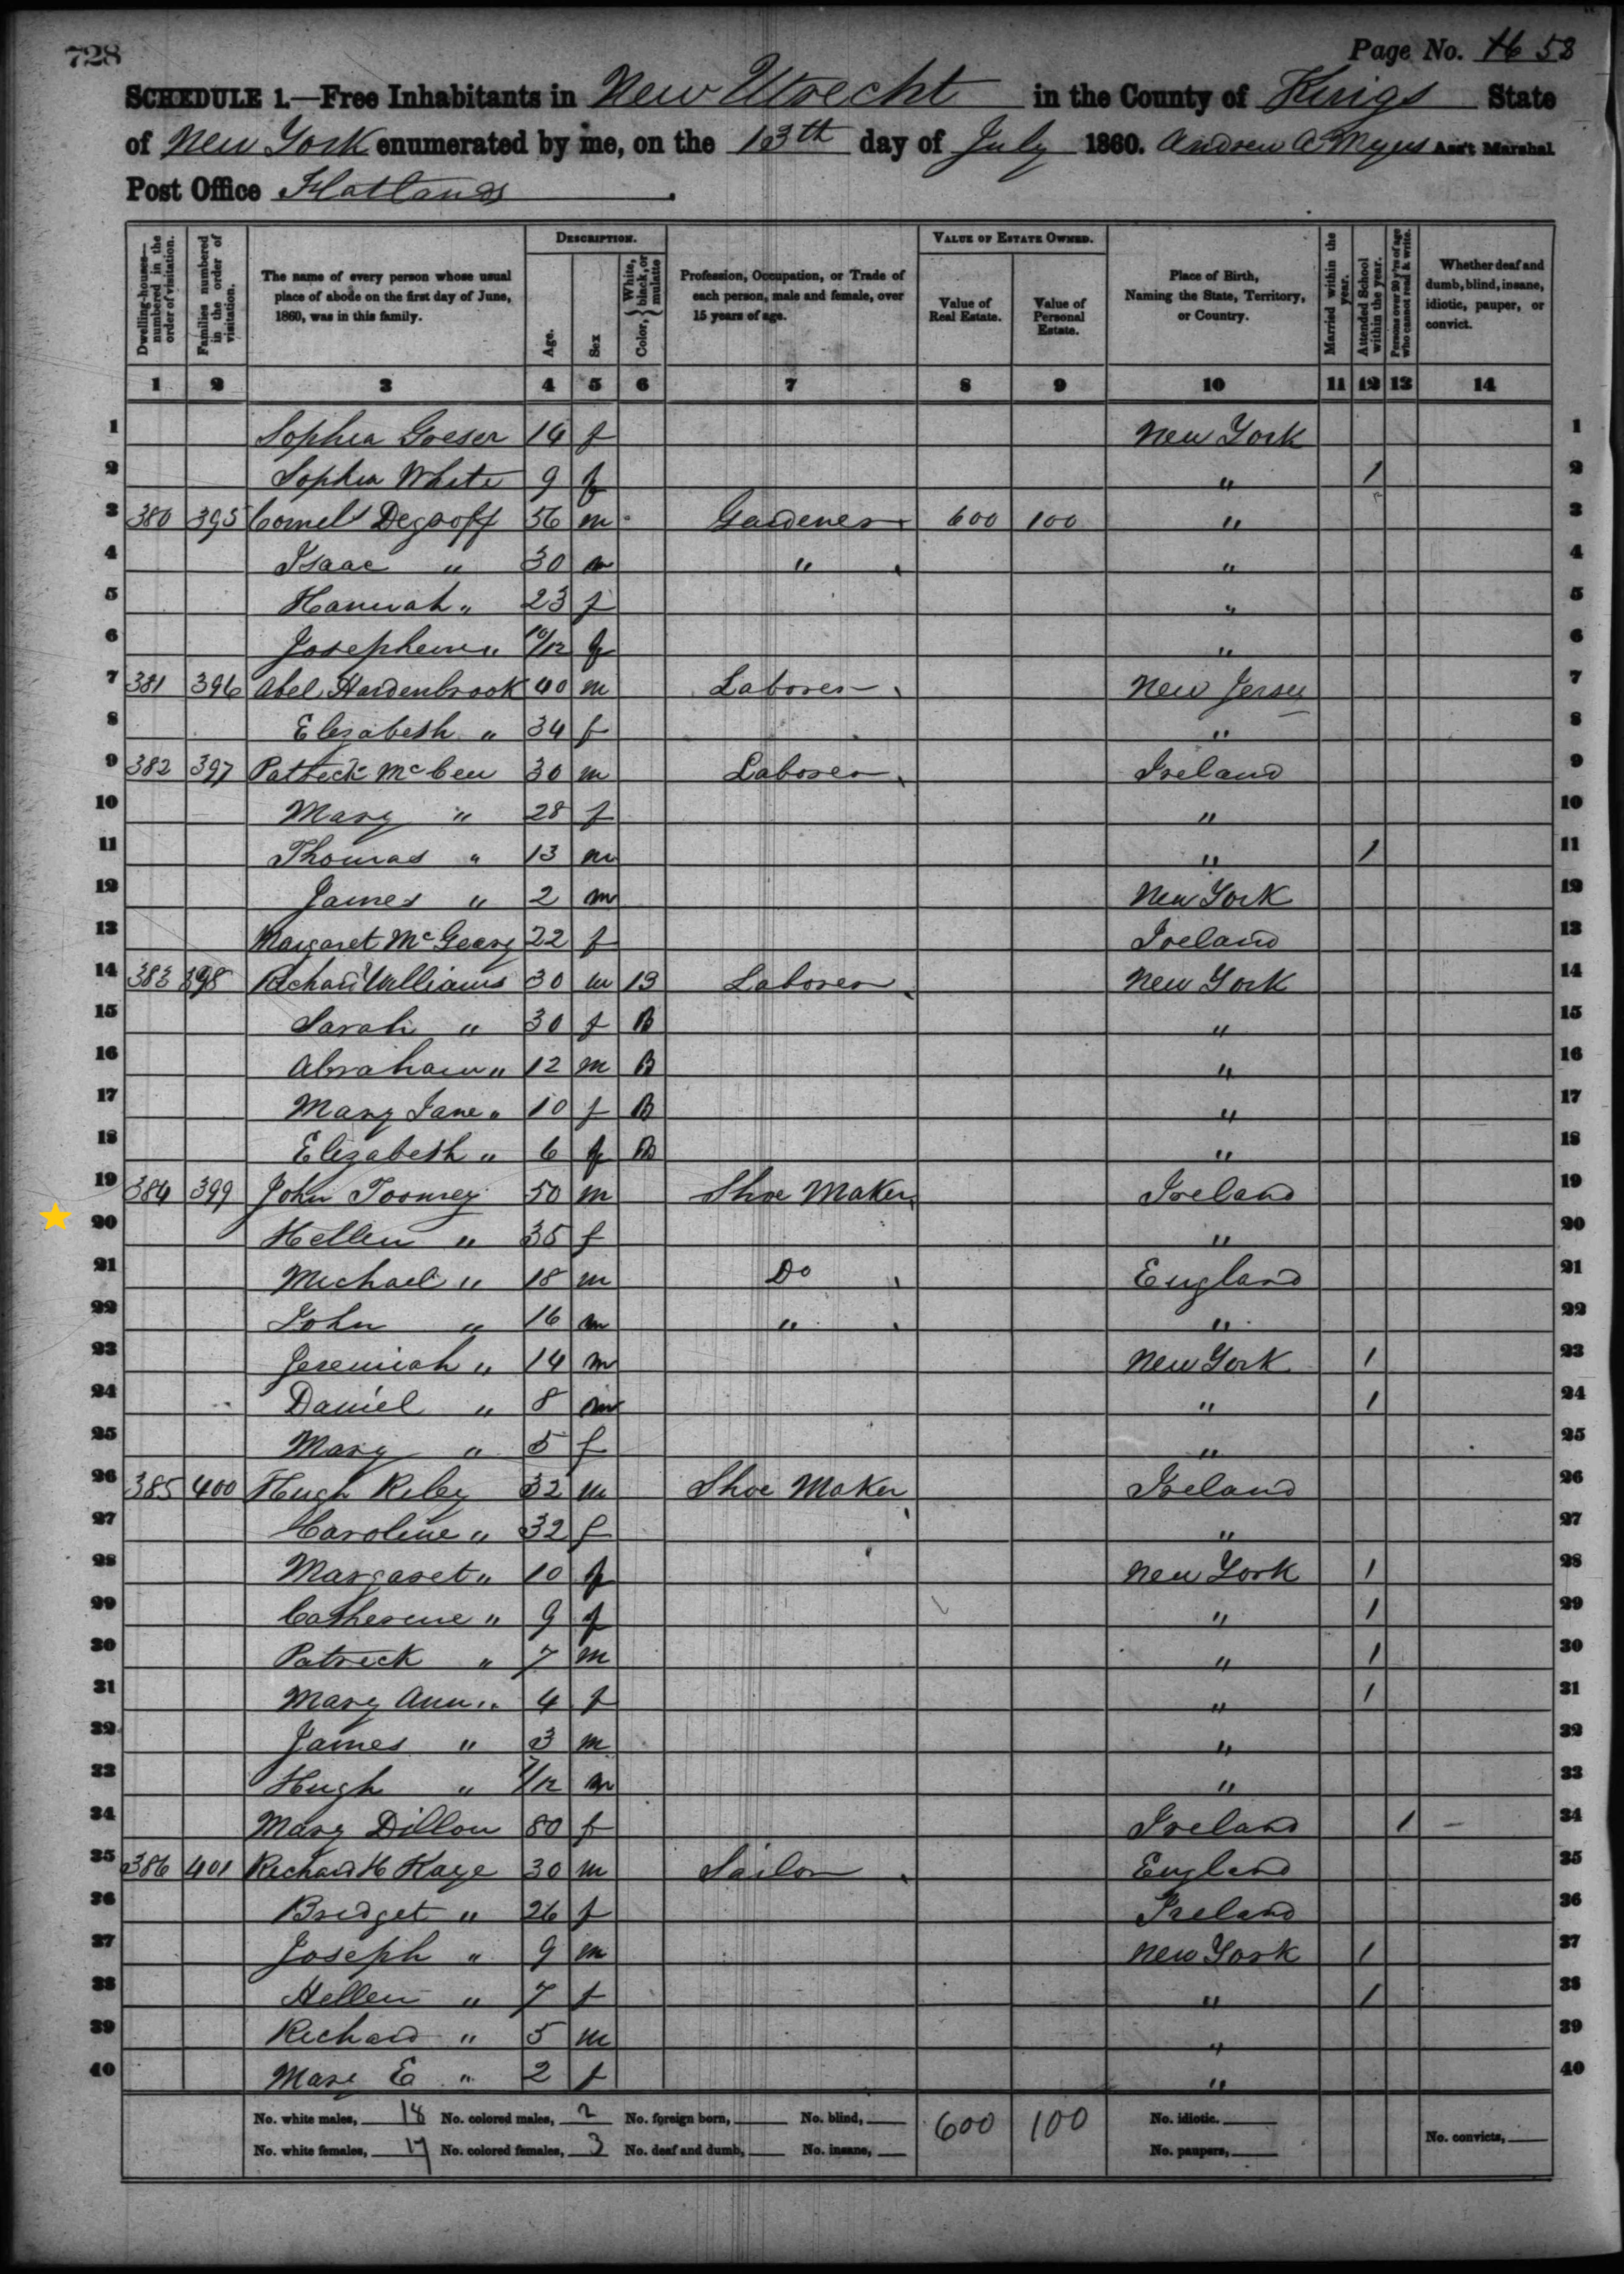 728
Page No. 16 58
SCHEDULE 1.—Free Inhabitants in New Utrecht in the County of Kings State
of New York enumerated by me, on the 13th day of July 1860. Andrew A Myers Ass't Marshal
Post Office Flatlands.
Dwelling-houses—numbered in the order of visitation.
Families numbered in the order of visitation.
The name of every person whose usual place of abode on the first day of June, 1860, was in this family.
DESCRIPTION.
Age.
Sex
Color, { White, black, or mulatto
Profession, Occupation, or Trade of each person, male and female, over 15 years of age.
VALUE OF ESTATE OWNED.
Value of Real Estate.
Value of Personal Estate.
Place of Birth, Naming the State, Territory, or Country.
Married within the year.
Attended School within the year.
Persons over 20 y'rs of age who cannot read & write.
Whether deaf and dumb, blind, insane, idiotic, pauper, or convict.
1 2 3 4 5 6 7 8 9 10 11 12 13 14
1 Sophia Goeser 14 f New York 1
2 Sophia White 9 f " 1 2
3 380 395 Cornels Degroff 56 m Gardener 600 100 " 3
4 Isaac " 30 m " " 4
5 Hannah " 23 f " 5
6 Josephene " 10/12 f " 6
7 381 396 Abel Hardenbrook 40 m Laborer New Jersey 7
8 Elezabeth " 34 f " 8
9 382 397 Patreck McCeu 30 m Laborer Ireland 9
10 Mary " 28 f " 10
11 Thomas " 13 m " 1 11
12 James " 2 m New York 12
13 Margaret McGeary 22 f Ireland 13
14 383 398 Richard Williams 30 m B Laborer New York 14
15 Sarah " 30 f B " 15
16 Abraham " 12 m B " 16
17 Mary Jane " 10 f B " 17
18 Elezabeth " 6 f B " 18
19 384 399 John Toomey 50 m Shoe Maker Ireland 19
20 Hellen " 35 f " 20
21 Michael " 18 m Do England 21
22 John " 16 m " " 22
23 Jeremiah " 14 m New York 1 23
24 Daniel " 8 m " 1 24
25 Mary " 5 f " 25
26 385 400 Hugh Riley 32 m Shoe Maker Ireland 26
27 Caroline " 32 f " 27
28 Margaret " 10 f New York 1 28
29 Catherene " 9 f " 1 29
30 Patreck " 7 m " 1 30
31 Mary Ann " 4 f " 1 31
32 James " 3 m " 32
33 Hugh " 7/12 m " 33
34 Mary Dillon 80 f Ireland 1 34
35 386 401 Richard H Kage 30 m Sailor England 35
36 Bredget " 26 f Ireland 36
37 Joseph " 9 m New York 1 37
38 Hellen " 7 f " 1 38
39 Richard " 5 m " 39
40 Mary E " 2 f " 40
No. white males, 18 No. colored males, 2 No. foreign born, No. blind, 600 100 No. idiotic.
No. white females, 17 No. colored females, 3 No. deaf and dumb, No. insane, No. paupers, No. convicts,